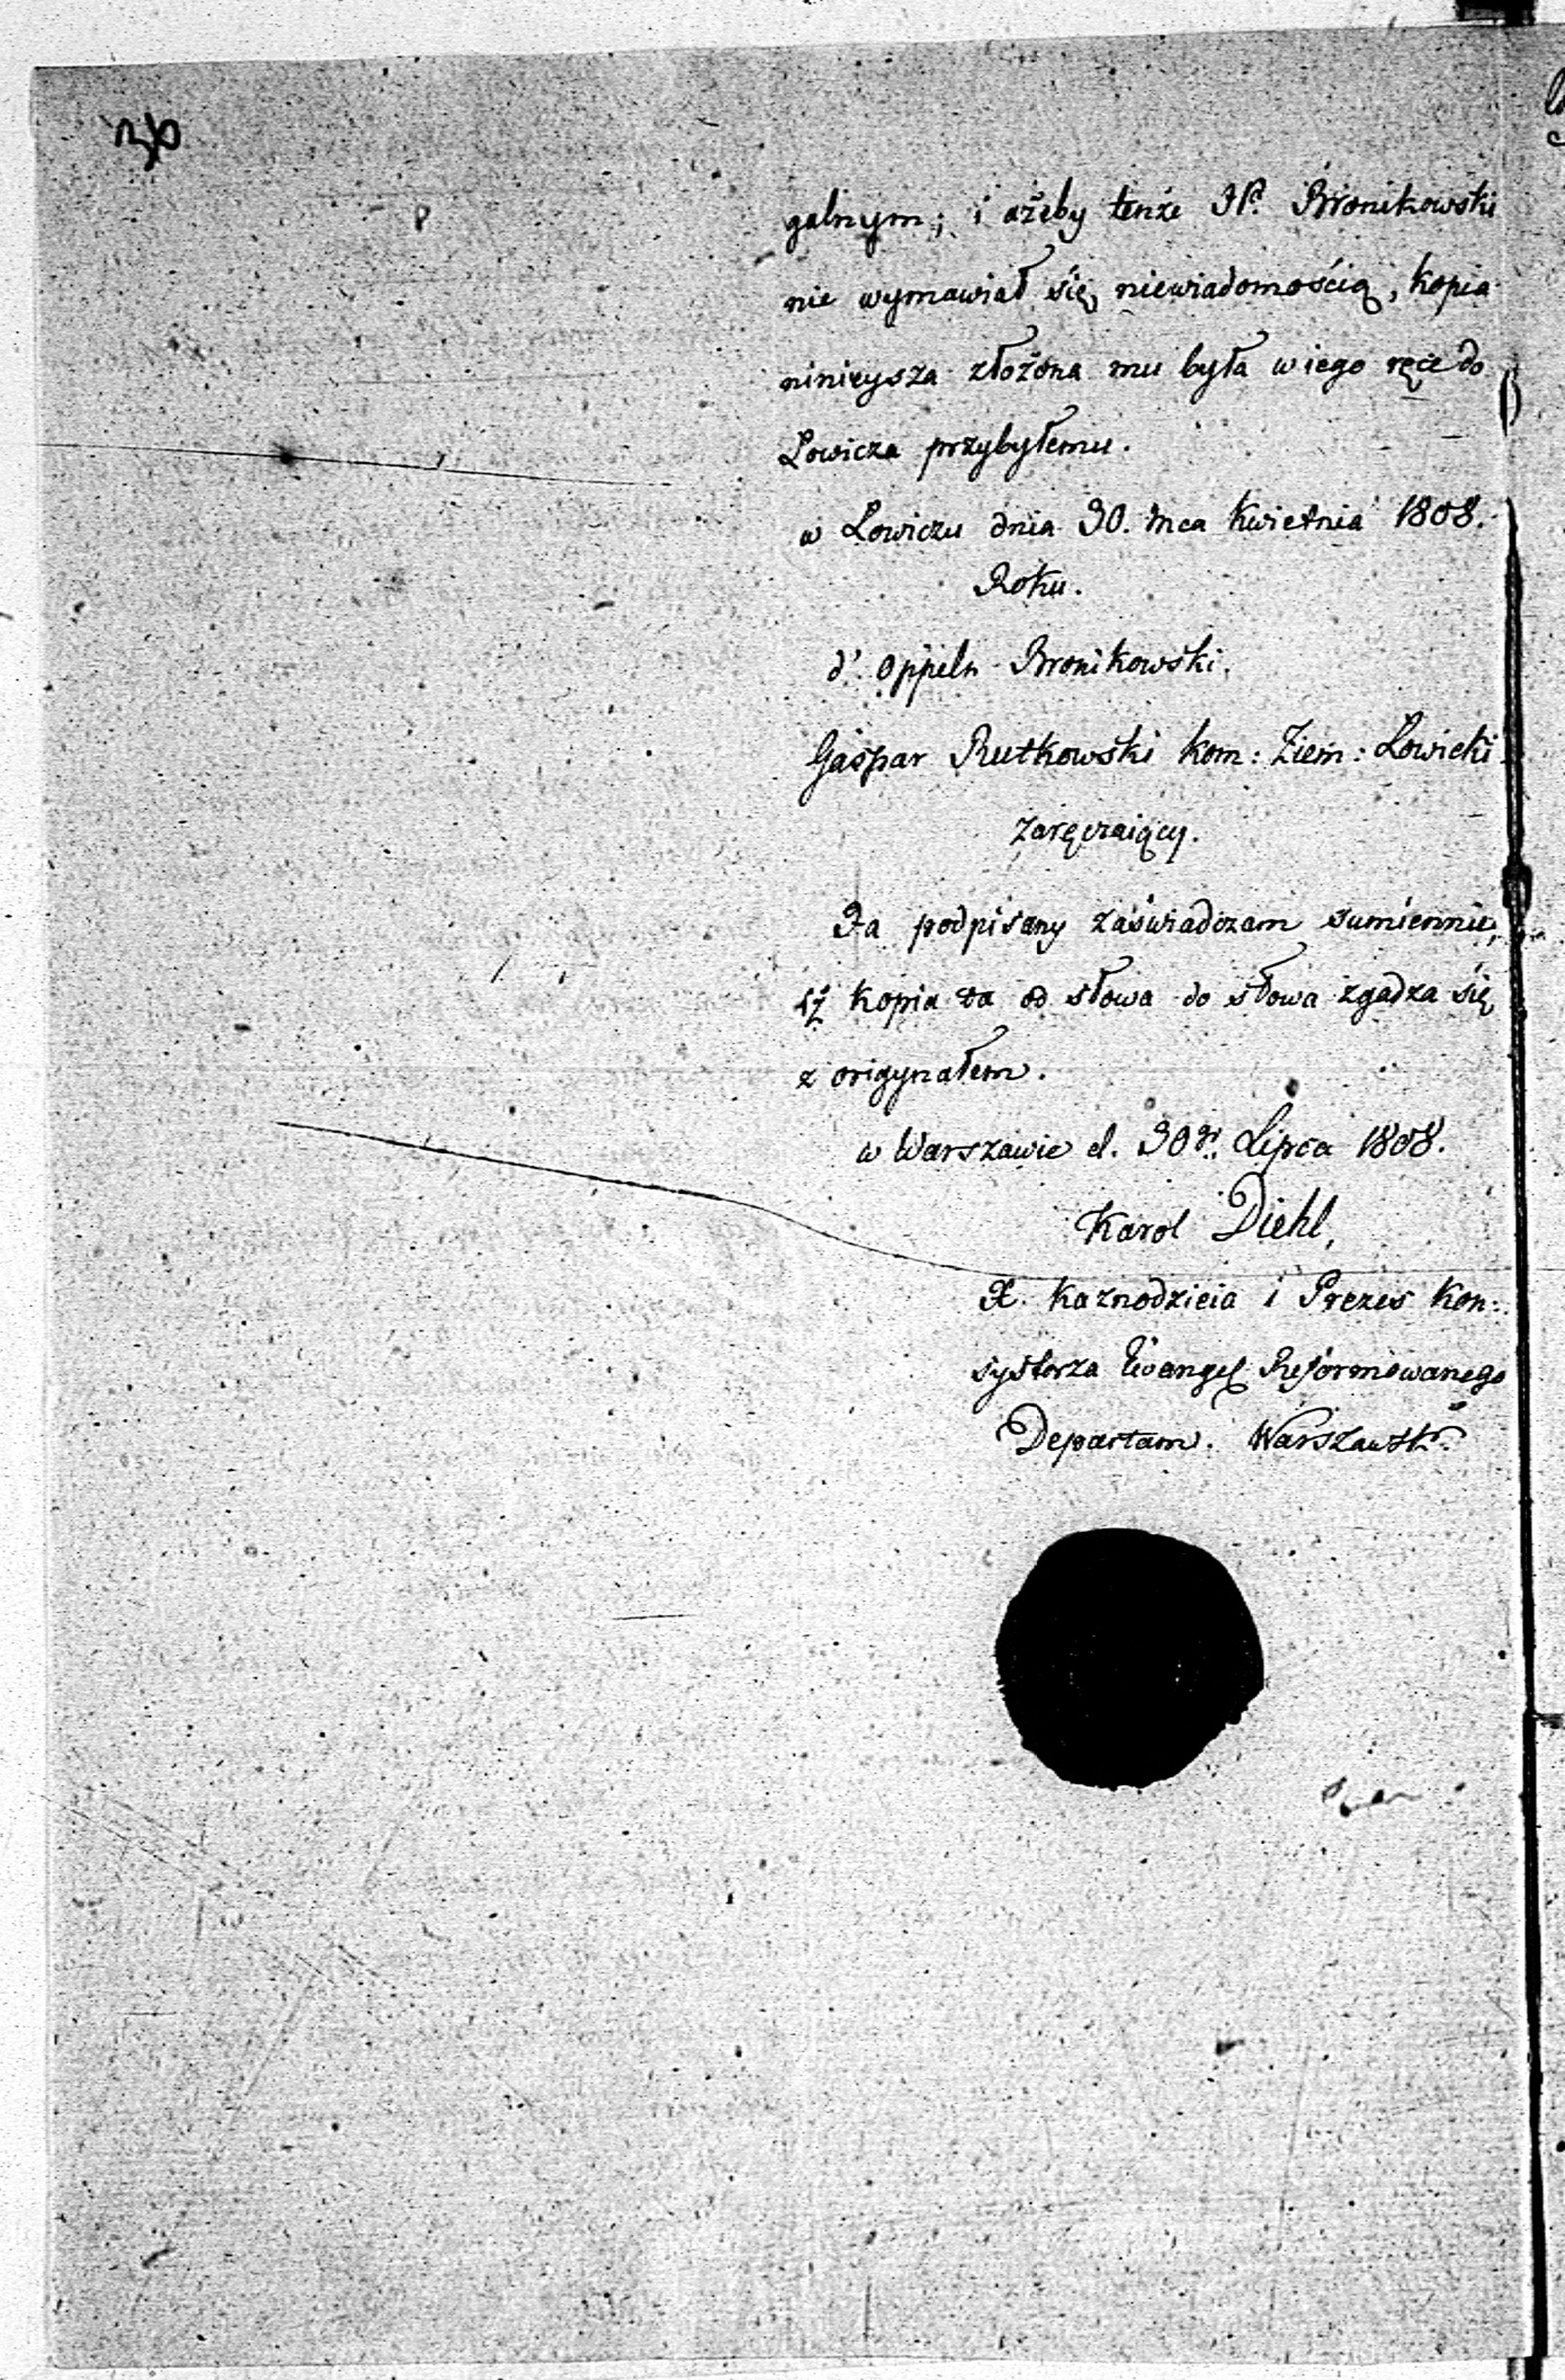 galnym; i ażeby tenże JP. Bronikowski
nie wymawiał się niewiadomością, kopia
ninieysza złożona mu była w iego ręce do
Lowicza przybyłemu.
w Lowiczu dnia 30. Mca Kwietnia 1808.
Roku.
d'. Oppeln Bronikowski.
Gaspar Rutkowski kom: Ziem: Lowicki
Zaręczaiący.
Ja podpisany zaświadczam sumiennie,
iż kopia ta od słowa do słowa zgadza się
z origynałem.
w Warszawie d. 30. Lipca 1808.
Karol Diehl,
X. Kaznodzieia i Prezes Kon:
systorza Ewangel Reformowanego
Departam. Warszawsk: